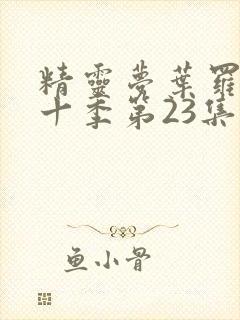 精靈夢葉羅
十季第23集
鱼小骨